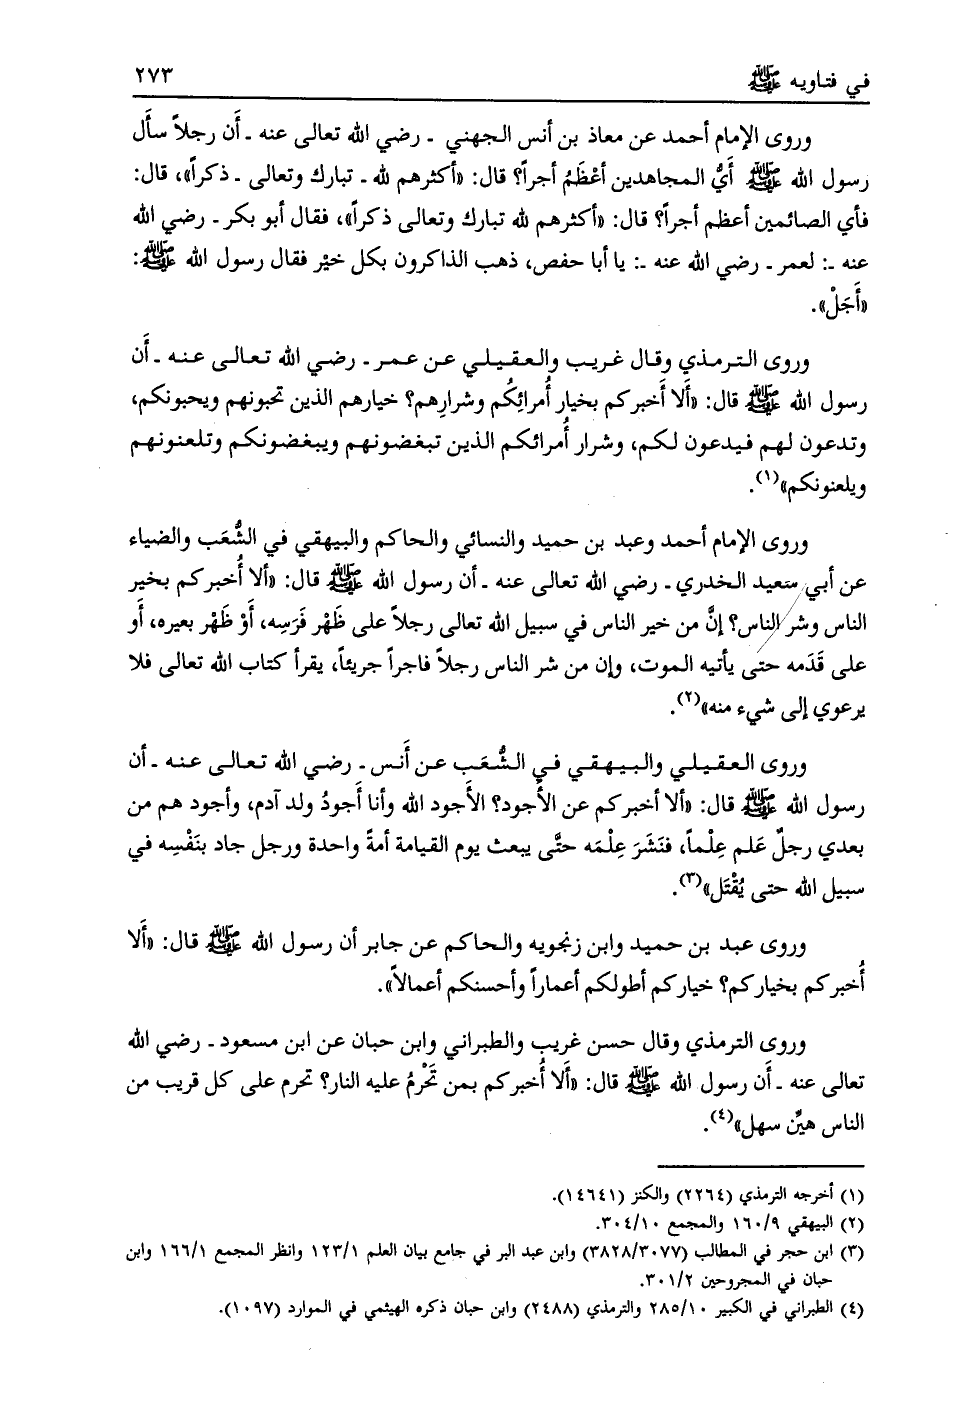 في فتاويه ﷺ ٢٧٣
وروى الإمام أحمد عن معاذ بن أنس الجهني ـ رضي الله تعالى عنه ـ أَن رجلاً سأَل
رسول الله ﷺ أَيُّ المجاهدين أعْظَمُ أجراً؟ قال: «أكثرهم لله ـ تبارك وتعالى ـ ذكراً»، قال:
فأي الصائمين أعظم أجراً؟ قال: «أكثرهم لله تبارك وتعالى ذكراً»، فقال أبو بكر ـ رضي الله
عنه ـ: لعمر ـ رضي الله عنه ـ: يا أبا حفص، ذهب الذاكرون بكل خيْر فقال رسول الله ﷺ:
«أَجَلْ».
وروى الترمذي وقال غريب والعقيلي عن عمر ـ رضي الله تعالى عنه ـ أَن
رسول الله ﷺ قال: «أَلا أَخبركم بخيار أُمرائِكُم وشرارِهم؟ خيارهم الذين تحبونهم ويحبونكم،
وتدعون لهم فيدعون لكم، وشرار أُمرائكم الذين تبغضونهم ويبغضونكم وتلعنونهم
ويلعنونكم»(١).
وروى الإمام أحمد وعبد بن حميد والنسائي والحاكم والبيهقي في الشُّعَب والضياء
عن أبي سعيد الخدري ـ رضي الله تعالى عنه ـ أن رسول الله ﷺ قال: «ألا أُخبركم بخير
الناس وشر الناس؟ إنَّ من خير الناس في سبيل الله تعالى رجلاً على ظَهْر فَرَسِه، أَوْ ظَهْر بعيره، أَو
على قَدَمه حتى يأتيه الموت، وإن من شر الناس رجلاً فاجراً جريئاً، يقرأ كتاب الله تعالى فلا
يرعوي إلى شيء منه»(٢).
وروى العقيلي والبيهقي في الشُّعَب عن أَنس ـ رضي الله تعالى عنه ـ أن
رسول الله ﷺ قال: «ألا أخبركم عن الأَجود؟ الأَجود الله وأنا أَجودُ ولد آدم، وأجود هم من
بعدي رجلٌ عَلم عِلْماً، فنَشَرَ عِلْمَه حتَّى يبعث يوم القيامة أمةً واحدة ورجل جاد بنَفْسِه في
سبيل الله حتى يُقْتَل»(٣).
وروى عبد بن حميد وابن زنجويه والحاكم عن جابر أن رسول الله ﷺ قال: «أَلا
أُخبركم بخياركم؟ خياركم أطولكم أعماراً وأحسنكم أعمالاً».
وروى الترمذي وقال حسن غريب والطبراني وابن حبان عن ابن مسعود ـ رضي الله
تعالى عنه ـ أَن رسول الله ﷺ قال: «أَلا أُخبركم بمن تَحْرمُ عليه النار؟ تحرم على كل قريب من
الناس هيِّن سهل»(٤).
(١) أخرجه الترمذي (٢٢٦٤) والكنز (١٤٦٤١).
(٢) البيهقي ١٦٠/٩ والمجمع ٣٠٤/١٠.
(٣) ابن حجر في المطالب (٣٨٢٨/٣٠٧٧) وابن عبد البر في جامع بيان العلم ١٢٣/١ وانظر المجمع ١٦٦/١ وابن
حبان في المجروحين ٣٠١/٢.
(٤) الطبراني في الكبير ٢٨٥/١٠ والترمذي (٢٤٨٨) وابن حبان ذكره الهيثمي في الموارد (١٠٩٧).